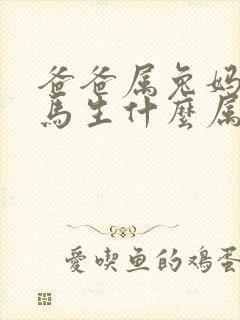 爸爸属兔妈
馬生什麼属
愛喫鱼的鸡蛋